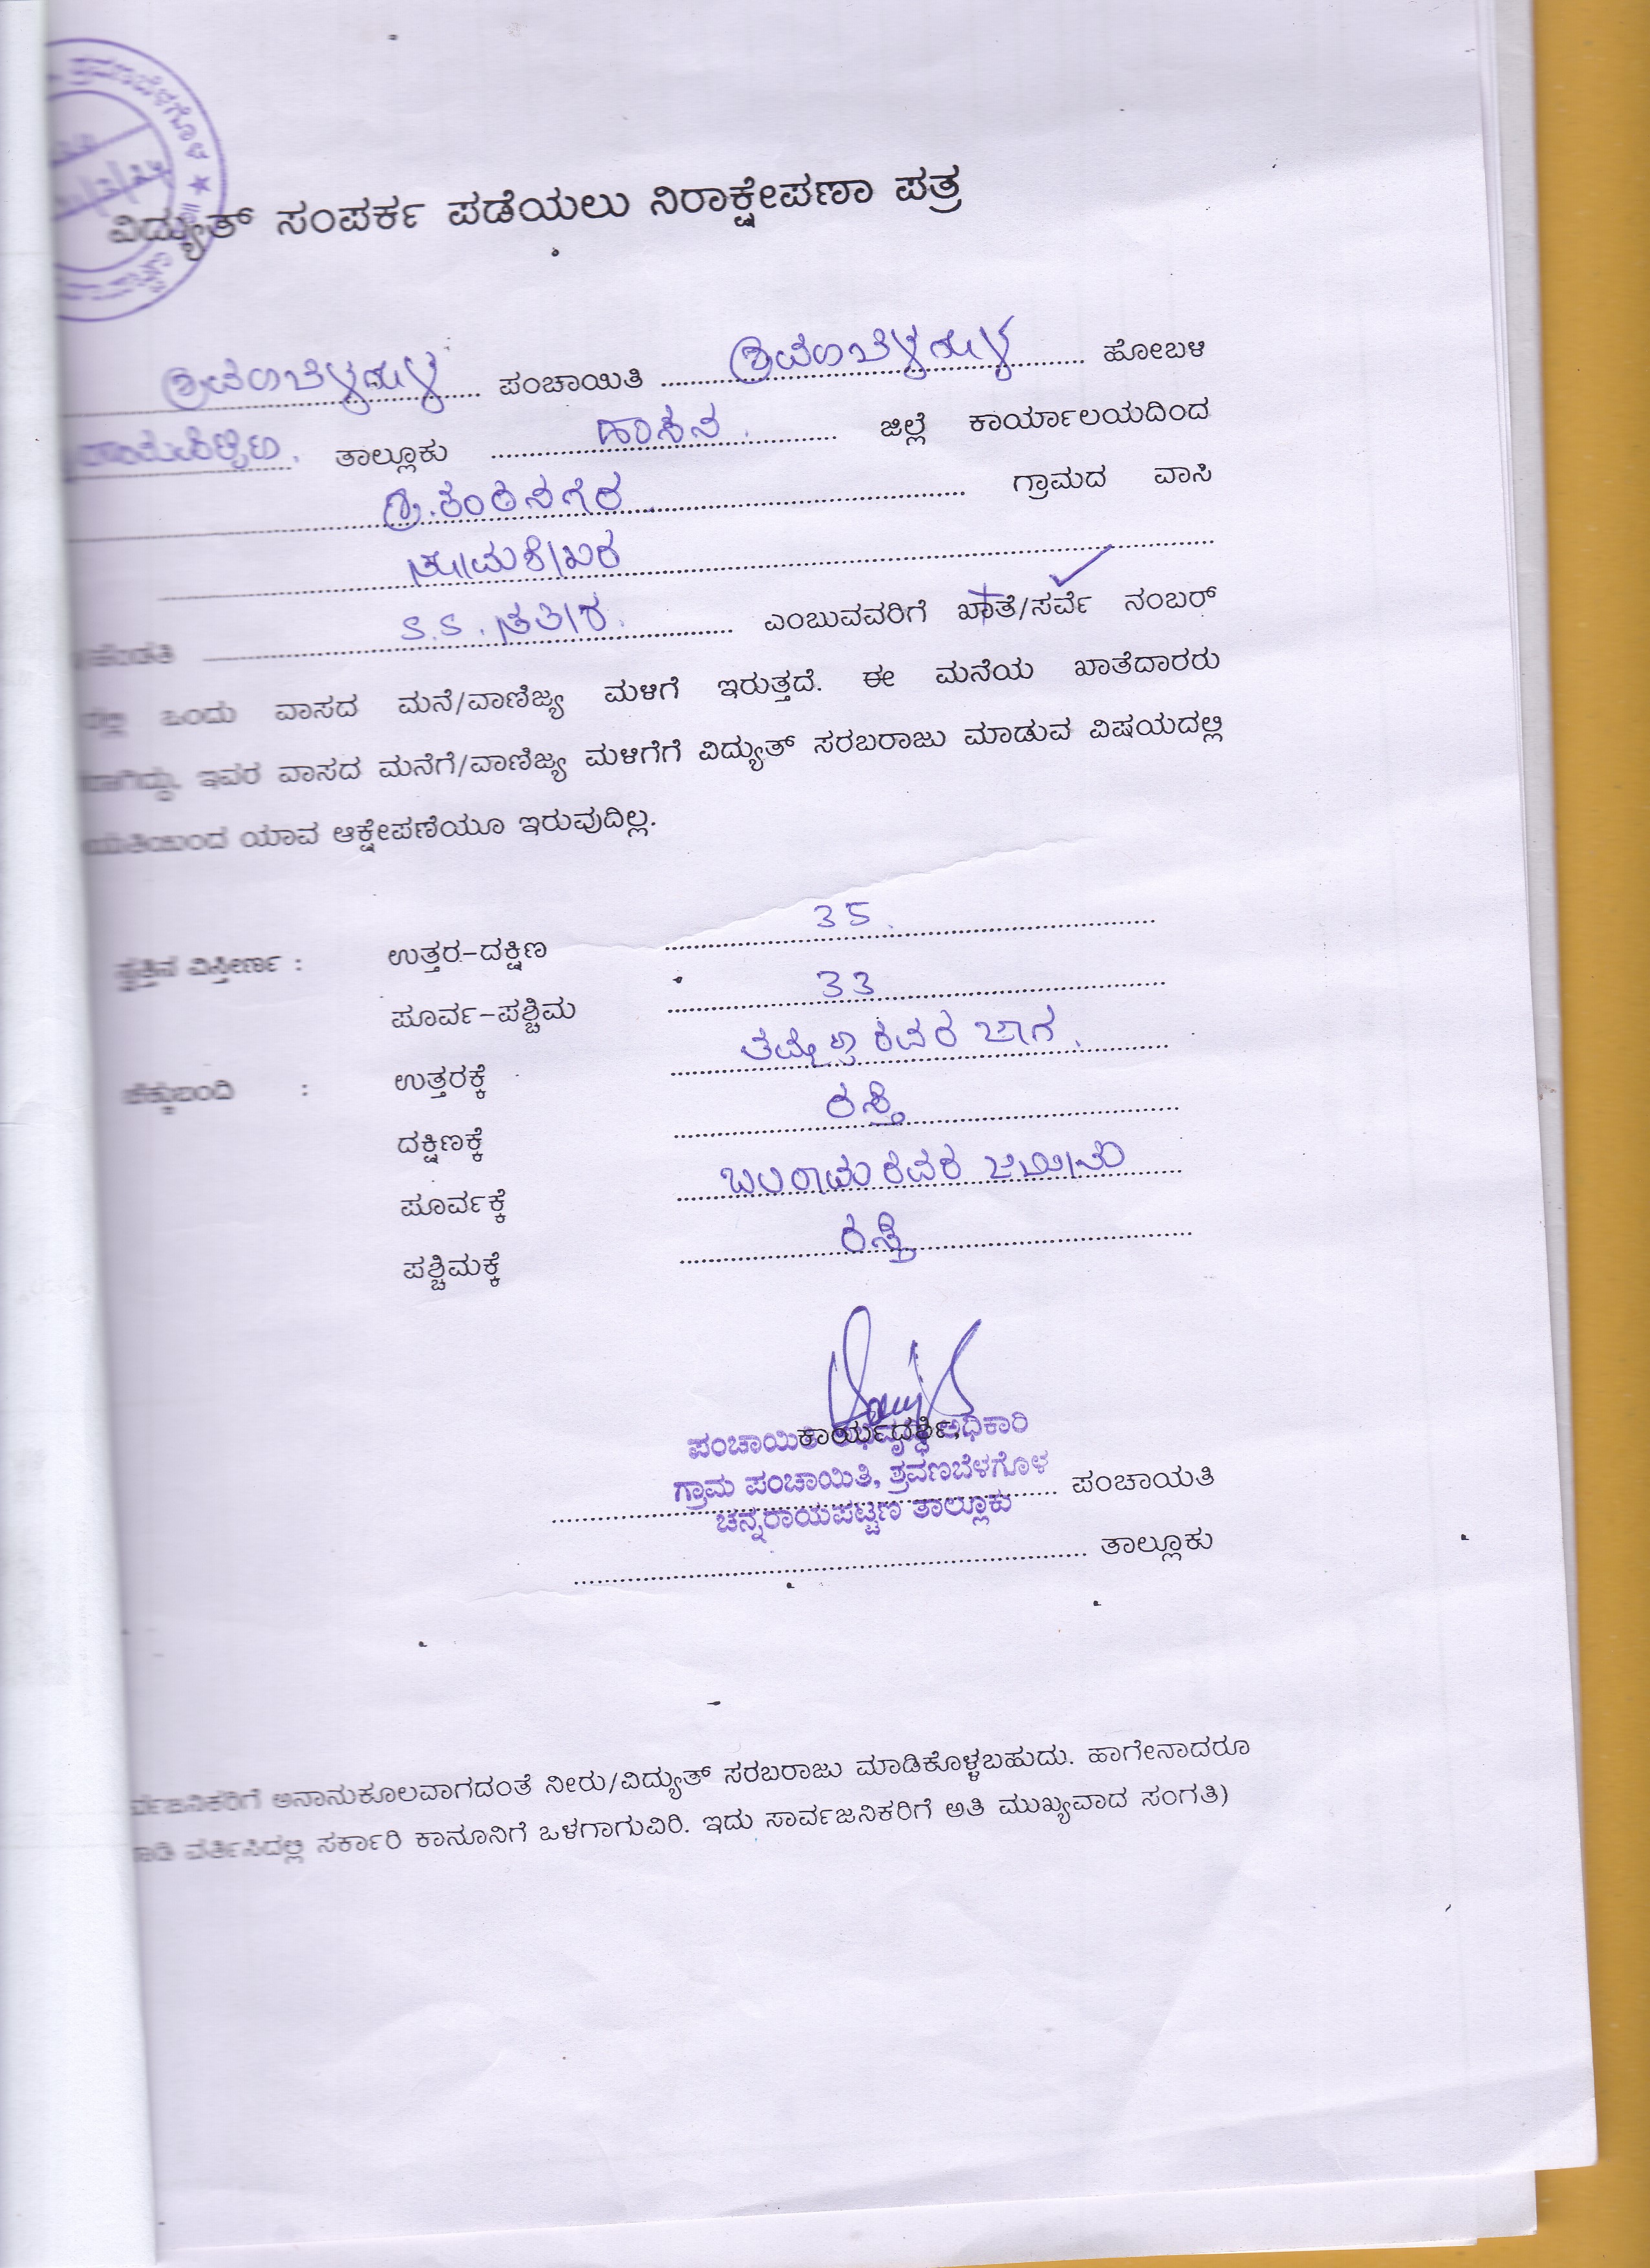 ಶ್ರವಣಬೆಳಗೊಳ ★
ವಿದ್ಯುತ್ ಸಂಪರ್ಕ ಪಡೆಯಲು ನಿರಾಕ್ಷೇಪಣಾ ಪತ್ರ
ಶ್ರವಣಬೆಳಗೊಳ ಪಂಚಾಯಿತಿ ಶ್ರವಣಬೆಳಗೊಳ ಹೋಬಳಿ
ತಾಲ್ಲೂಕು ಹಾಸನ. ಜಿಲ್ಲೆ ಕಾರ್ಯಾಲಯದಿಂದ
ಗ್ರಾಮದ ವಾಸಿ
ಎಂಬುವವರಿಗೆ ಖಾತೆ/ಸರ್ವೆ ನಂಬರ್
ಒಂದು ವಾಸದ ಮನೆ/ವಾಣಿಜ್ಯ ಮಳಿಗೆ ಇರುತ್ತದೆ. ಈ ಮನೆಯ ಖಾತೆದಾರರು
ಇವರ ವಾಸದ ಮನೆಗೆ/ವಾಣಿಜ್ಯ ಮಳಿಗೆಗೆ ವಿದ್ಯುತ್ ಸರಬರಾಜು ಮಾಡುವ ವಿಷಯದಲ್ಲಿ
ಯಾವ ಆಕ್ಷೇಪಣೆಯೂ ಇರುವುದಿಲ್ಲ.
ವಿಸ್ತೀರ್ಣ : ಉತ್ತರ-ದಕ್ಷಿಣ 35.
ಪೂರ್ವ-ಪಶ್ಚಿಮ 33
ಚೆಕ್ಕುಬಂದಿ : ಉತ್ತರಕ್ಕೆ ರವರ ಜಾಗ.
ದಕ್ಷಿಣಕ್ಕೆ ರಸ್ತೆ
ಪೂರ್ವಕ್ಕೆ ಬಲರಾಮರವರ ಜಮೀನು
ಪಶ್ಚಿಮಕ್ಕೆ ರಸ್ತೆ
ಕಾರ್ಯದರ್ಶಿ,
ಪಂಚಾಯಿತಿ ಅಭಿವೃದ್ಧಿ ಅಧಿಕಾರಿ
ಗ್ರಾಮ ಪಂಚಾಯಿತಿ, ಶ್ರವಣಬೆಳಗೊಳ ಪಂಚಾಯತಿ
ಚನ್ನರಾಯಪಟ್ಟಣ ತಾಲ್ಲೂಕು
ತಾಲ್ಲೂಕು
ಅನಾನುಕೂಲವಾಗದಂತೆ ನೀರು/ವಿದ್ಯುತ್ ಸರಬರಾಜು ಮಾಡಿಕೊಳ್ಳಬಹುದು. ಹಾಗೇನಾದರೂ
ವರ್ತಿಸಿದಲ್ಲಿ ಸರ್ಕಾರಿ ಕಾನೂನಿಗೆ ಒಳಗಾಗುವಿರಿ. ಇದು ಸಾರ್ವಜನಿಕರಿಗೆ ಅತಿ ಮುಖ್ಯವಾದ ಸಂಗತಿ)